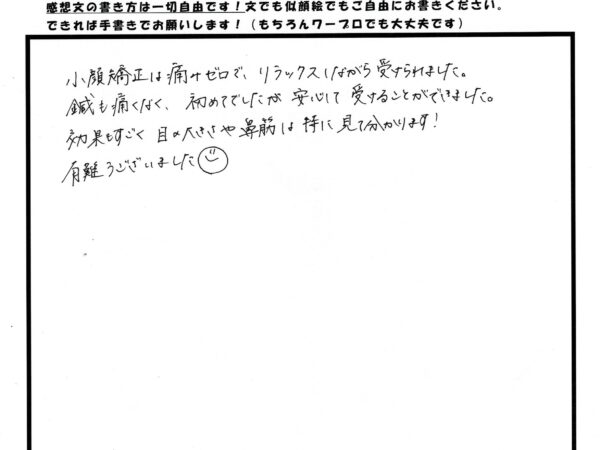 感想文の書き方は一切自由です！文でも似顔絵でもご自由にお書きください。
できれば手書きでお願いします！（もちろんワープロでも大丈夫です）
小顔矯正は痛みゼロで、リラックスしながら受けられました。
鍼も痛くなく、初めてでしたが安心して受けることができました。
効果もすごく目の大きさや鼻筋は特に見て分かります！
有難うございました